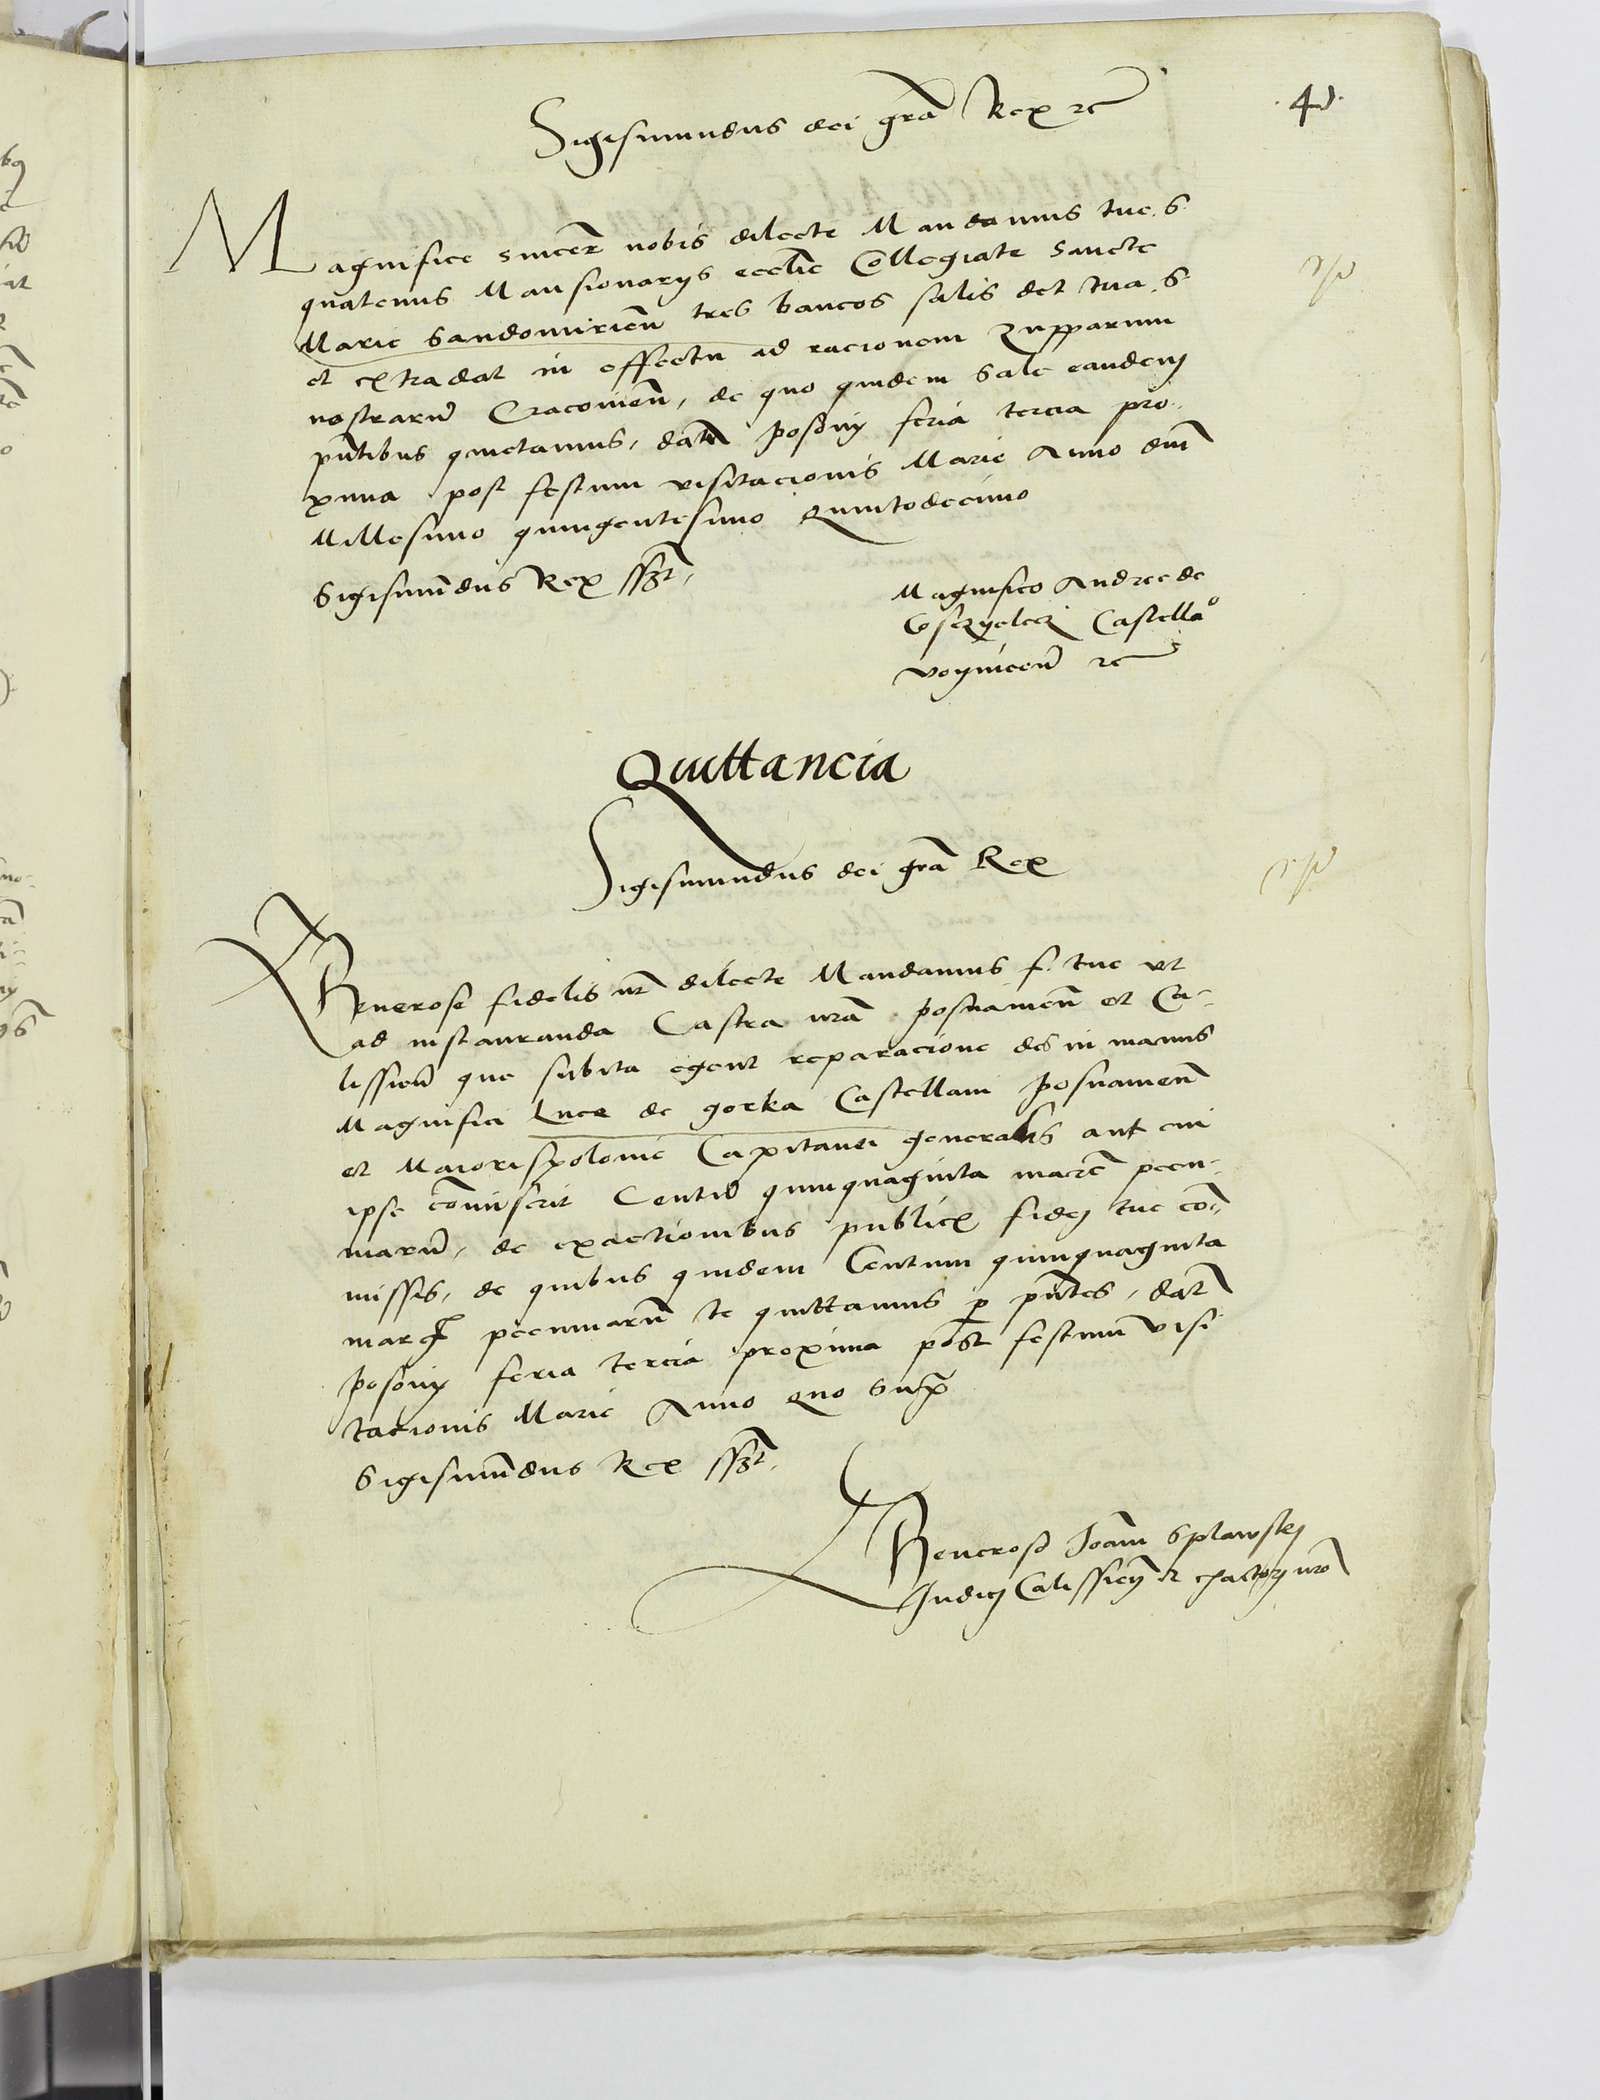 Sigismundus dei gra Rex rc
Magnifice sincer nobis dilecte Mandamus tue S
quatenus Mansionarys ecclie Collegiate Sancte
Marie Sandomirien tres bancos salis det tua S
et extradat in effectu ad racionem zupparum
nostraru Cracovien, de quo quidem Sale eandem
pntibus quietamus, datu posony feria tercia pro-
xima post festum visitacionis Marie Anno dni
Millesimo quingentesimo Quintodecimo
Sigismundus Rex sszt
Magnifico Andree de
Coszyelecz Castellao
voyniceu rc
Quittancia
Sigismundus dei gra Rex
Generose fidelis nr dilecte Mandamus f. tue ut
ad instauranda Castra nra posnanien et Ca-
lissieu que subita egent reparacione des in manus
Magnifici Luce de gorka Castellani posnanien
et Maioris polonie Capitanei generalis aut cui
ipse comiserit Centu quinquaginta marc pecu-
niaru, de exactionibus publicis fidei tue com-
missis, de quibus quidem Centum quinquaginta
marcis pecuniaru te quittamus p pntes, dat
posony feria tercia proxima post festum visi-
tacionis Marie Anno quo supra
Sigismundus Rex sszt
Generoso Joan Splawsky
Judici Calissien et exactori nro